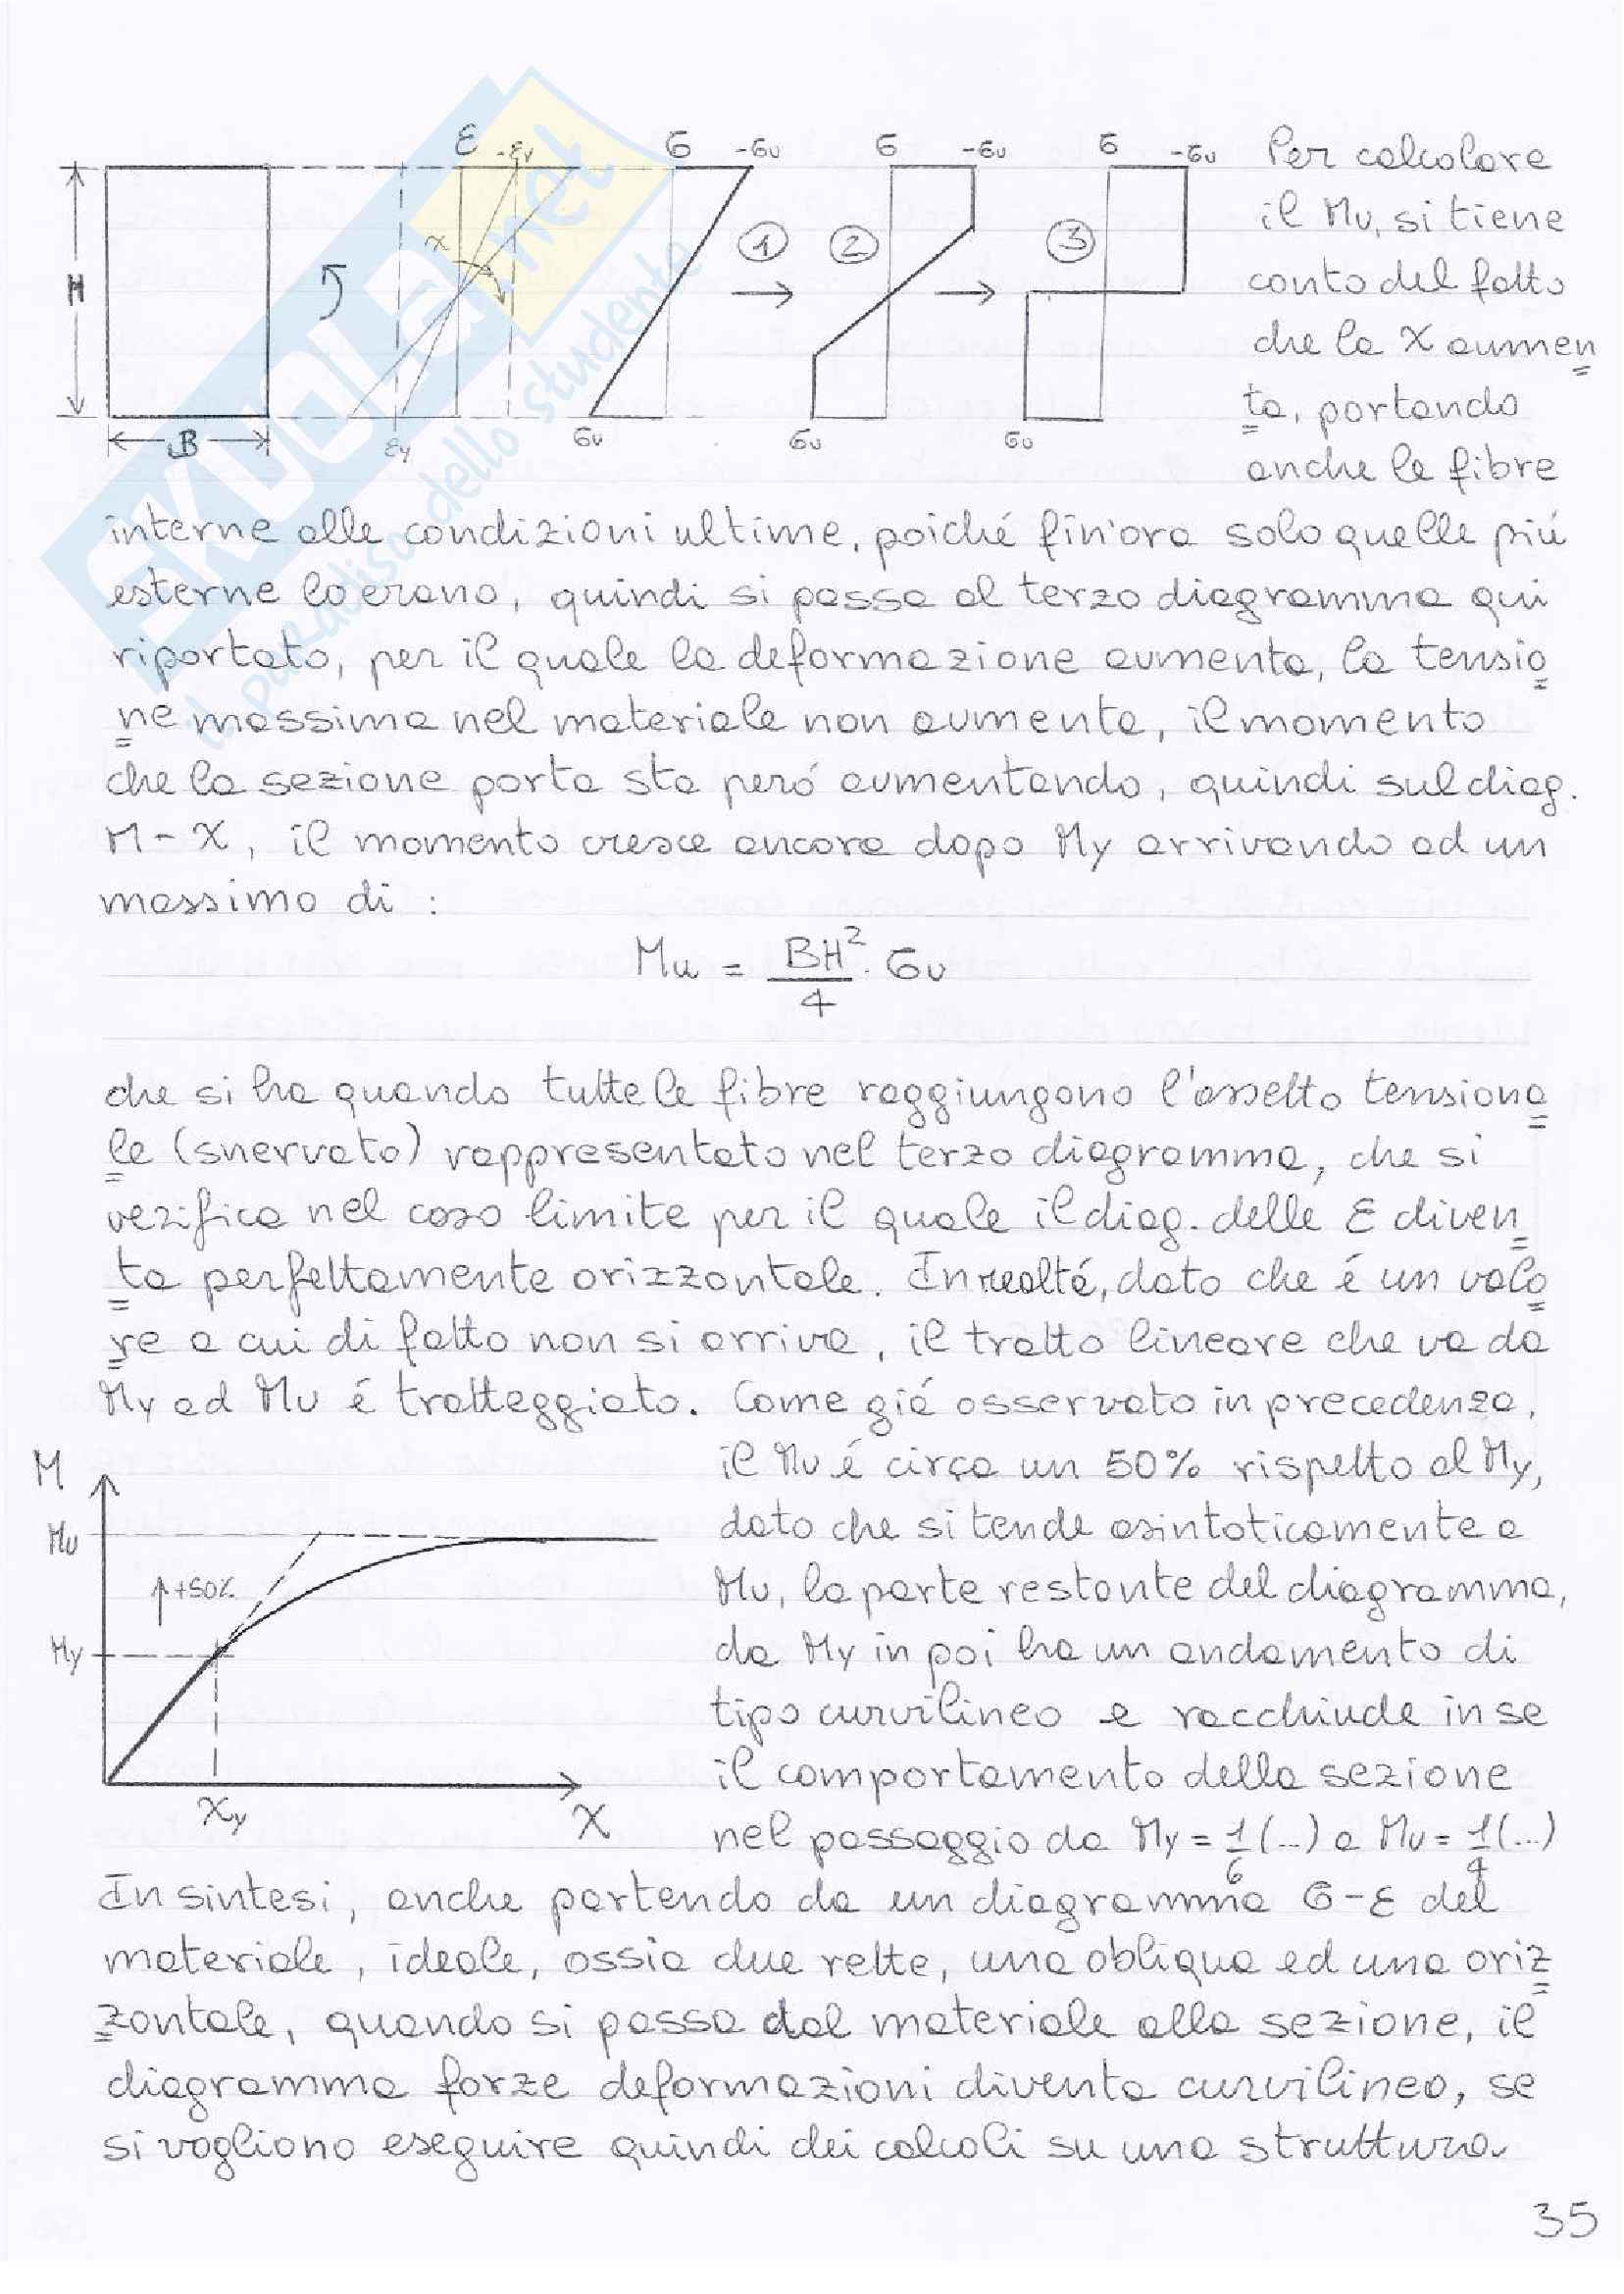 ε -εy σ -σu σ -σu σ -σu
H χ 1 2 3
B εy σu σu σu
Per calcolare
il Mu, si tiene
conto del fatto
che la χ aumen
ta, portando
anche le fibre
interne alle condizioni ultime, poiché fin'ora solo quelle piú
esterne lo erano, quindi si passa al terzo diagramma qui
riportato, per il quale la deformazione aumenta, la tensio
ne massima nel materiale non aumenta, il momento
che la sezione porta sta peró aumentando, quindi sul diag.
M-χ, il momento cresce ancora dopo My arrivando ad un
massimo di :
Mu = BH²/4 · σu
che si ha quando tutte le fibre raggiungono l'assetto tensiona
le (snervato) rappresentato nel terzo diagramma, che si
verifica nel caso limite per il quale il diag. delle ε diven
ta perfettamente orizzontale. In realtá, dato che é un valo
re a cui di fatto non si arriva, il tratto lineare che va da
My ad Mu é tratteggiato. Come giá osservato in precedenza,
il Mu é circa un 50% rispetto al My,
dato che si tende asintoticamente a
Mu, la parte restante del diagramma,
da My in poi ha un andamento di
tipo curvilineo e racchiude in se
il comportamento della sezione
nel passaggio da My = 1/6 (...) a Mu = 1/4 (...)
M
Mu
↑+50%
My
χy χ
In sintesi, anche partendo da un diagramma σ-ε del
materiale, ideale, ossia due rette, una obliqua ed una oriz
zontale, quando si passa dal materiale alla sezione, il
diagramma forze deformazioni diventa curvilineo, se
si vogliono eseguire quindi dei calcoli su una struttura
35
SKUOLA.net
il paradiso dello studente